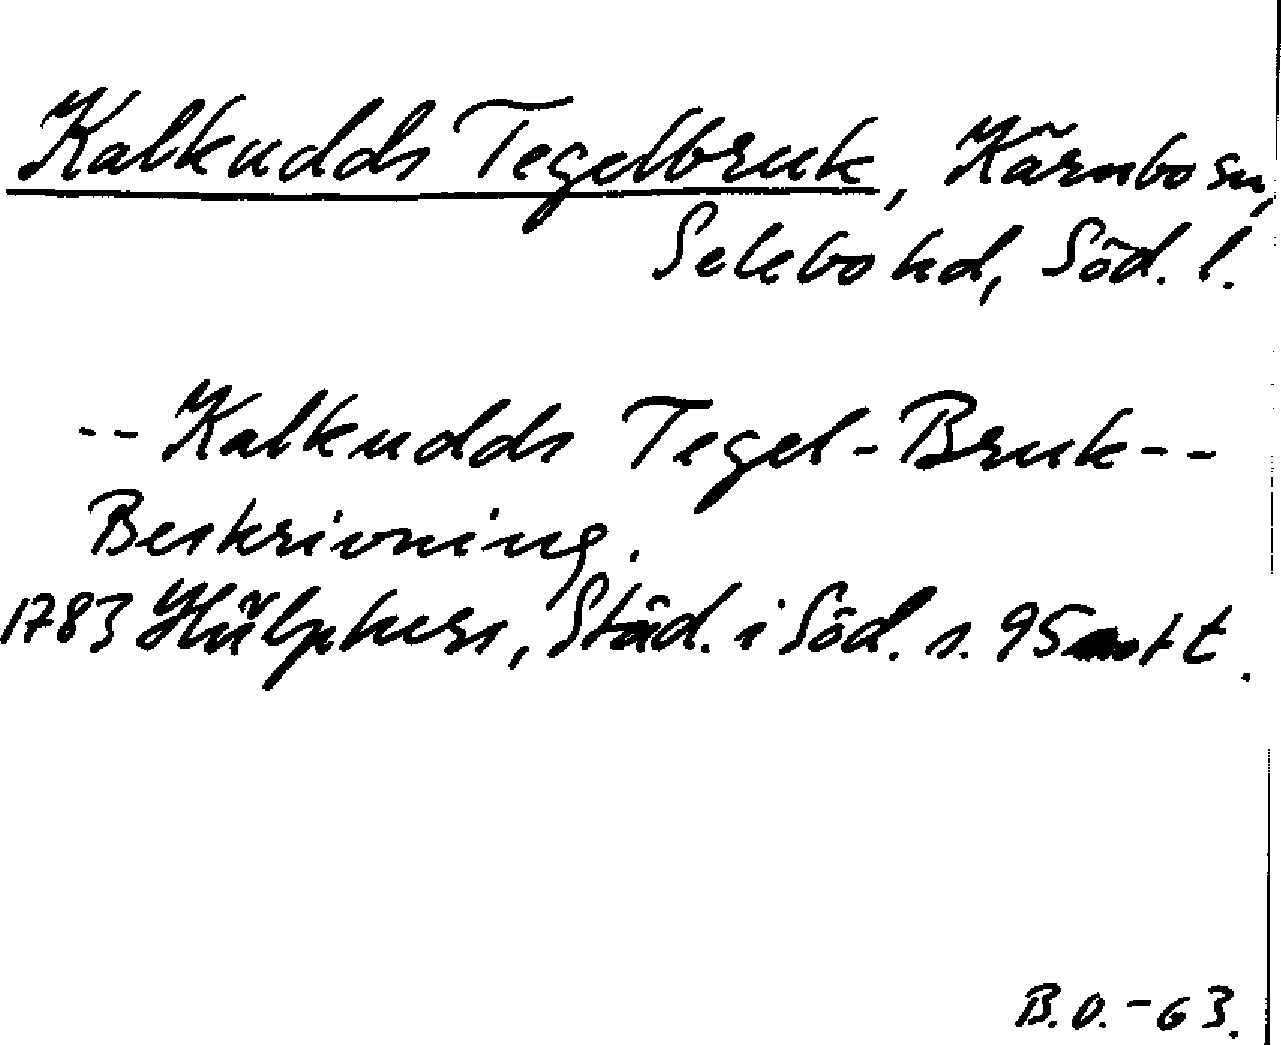 Kalkudds Tegelbruk, Kärnbo sn,
Selebo hd, Söd. l.
-- Kalkudds Tegel-Bruk--
Beskrivning.
1783 Hülphers, Städ. i Söd. s. 95 tt.
B.O. - 63.